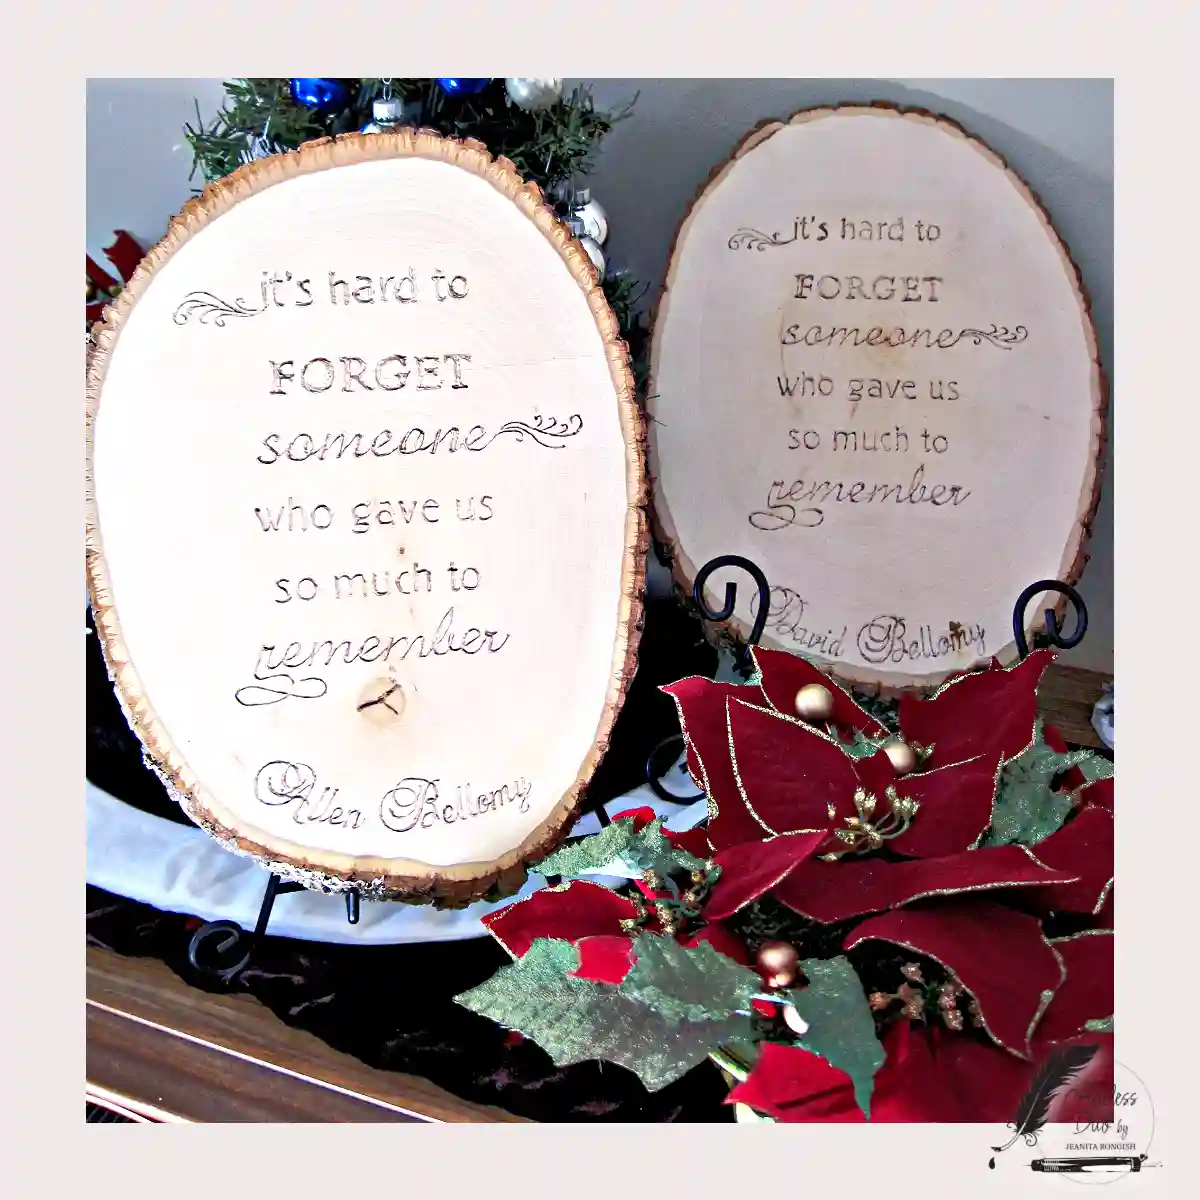 it's hard to
FORGET
someone
who gave us
so much to
remember
Allen Bellomy
it's hard to
FORGET
someone
who gave us
so much to
remember
David Bellomy
Duo by
JEANITA RONGISH